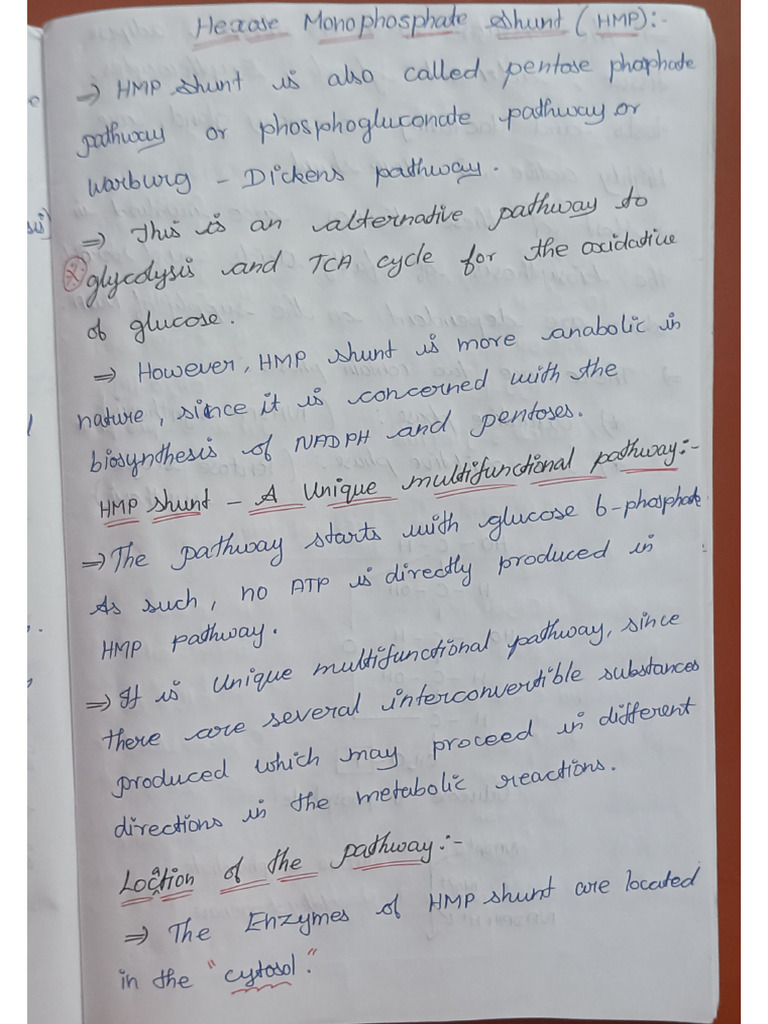 Hexose Monophosphate Shunt (HMP):-
⇒ HMP shunt is also called pentose phosphate
pathway or phosphogluconate pathway or
Warburg - Dickens pathway.
⇒ This is an alternative pathway to
glycolysis and TCA cycle for the oxidative
of glucose.
⇒ However, HMP shunt is more anabolic in
nature, since it is concerned with the
biosynthesis of NADPH and pentoses.
HMP shunt - A Unique multifunctional pathway:-
⇒ The pathway starts with glucose 6-phosphate.
As such, no ATP is directly produced in
HMP pathway.
⇒ It is Unique multifunctional pathway, since
there are several interconvertible substances
produced which may proceed in different
directions in the metabolic reactions.
Location of the pathway:-
⇒ The Enzymes of HMP shunt are located
in the "cytosol."